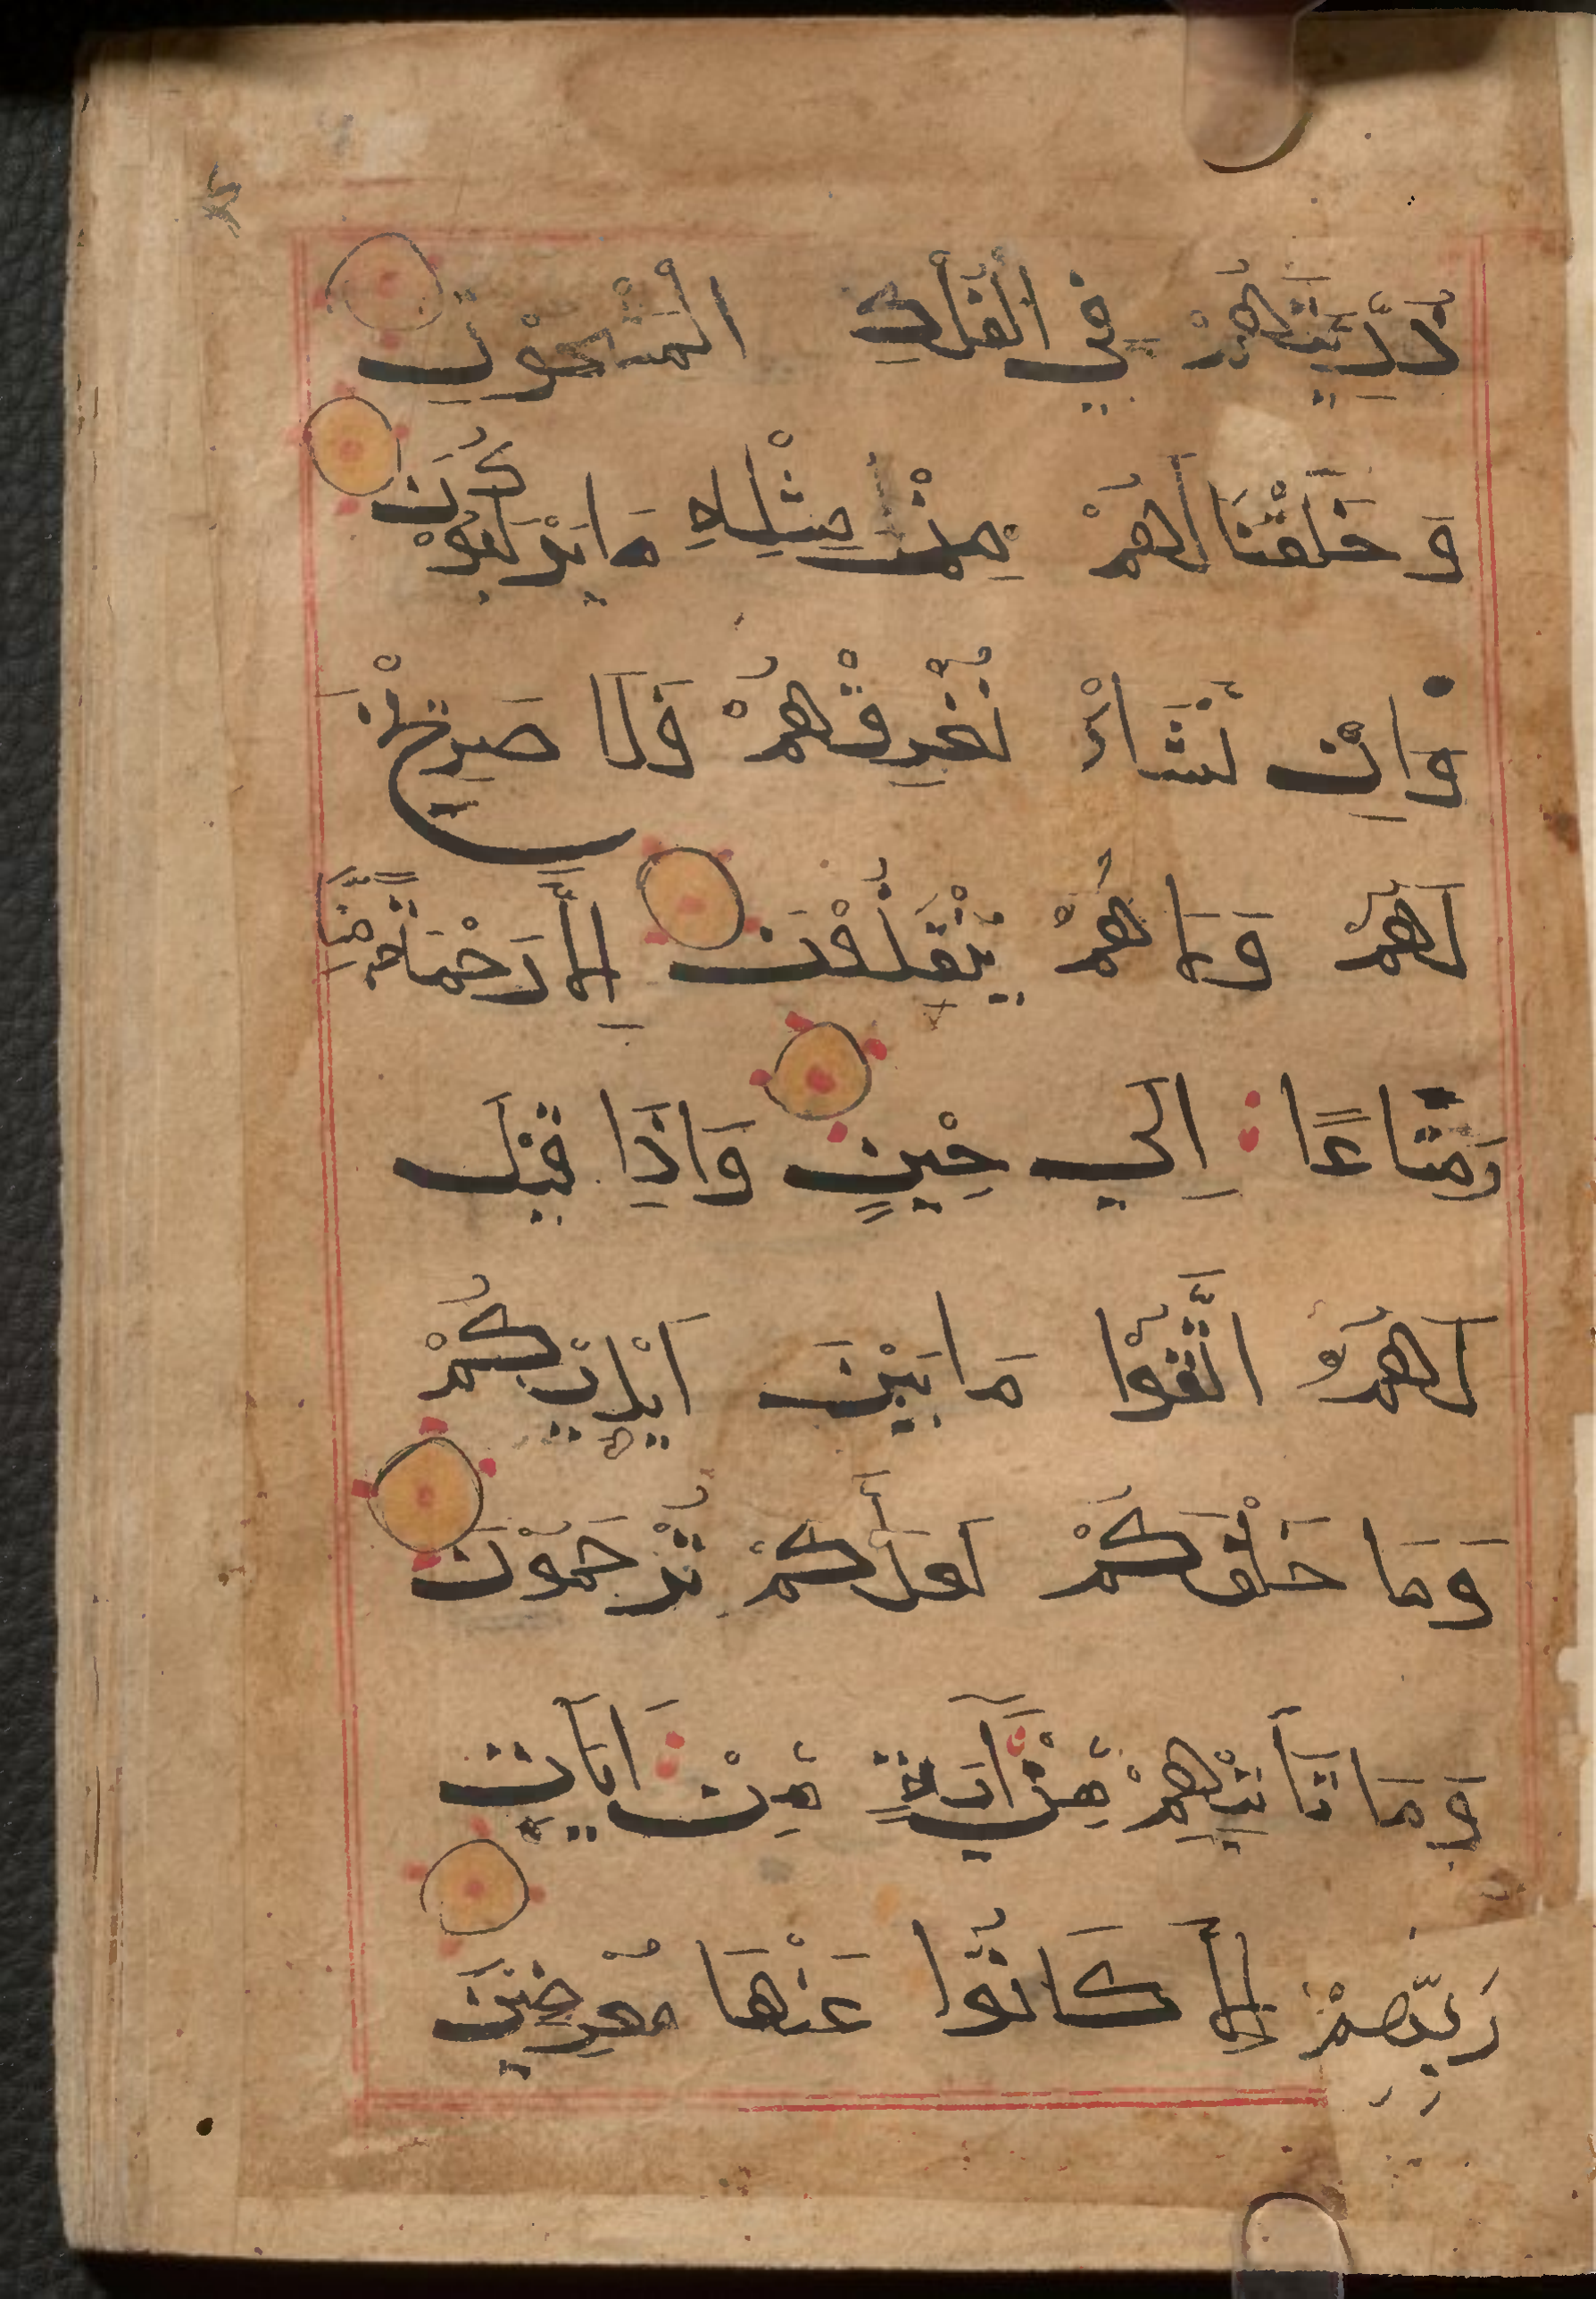 ذُرِّيَّتَهُمْ فِي الْفُلْكِ الْمَشْحُوْنِ
وَ خَلَقْنَا لَهُمْ مِنْ مِثْلِهِ مَا يَرْكَبُوْنَ
وَاِنْ نَّشَاْ نُغْرِقْهُمْ فَلَا صَرِيْخَ
لَهُمْ وَلَا هُمْ يُنْقَذُوْنَ اِلَّا رَحْمَةً مِّنَّا
وَمَتَاعًا اِلٰي حِيْنٍ وَاِذَا قِيْلَ
لَهُمُ اتَّقُوْا مَا بَيْنَ اَيْدِيْكُمْ
وَمَا خَلْفَكُمْ لَعَلَّكُمْ تُرْحَمُوْنَ
وَمَا تَأْتِيْهِمْ مِّنْ آيَةٍ مِّنْ آيَاتِ
رَبِّهِمْ اِلَّا كَانُوْا عَنْهَا مُعْرِضِيْنَ